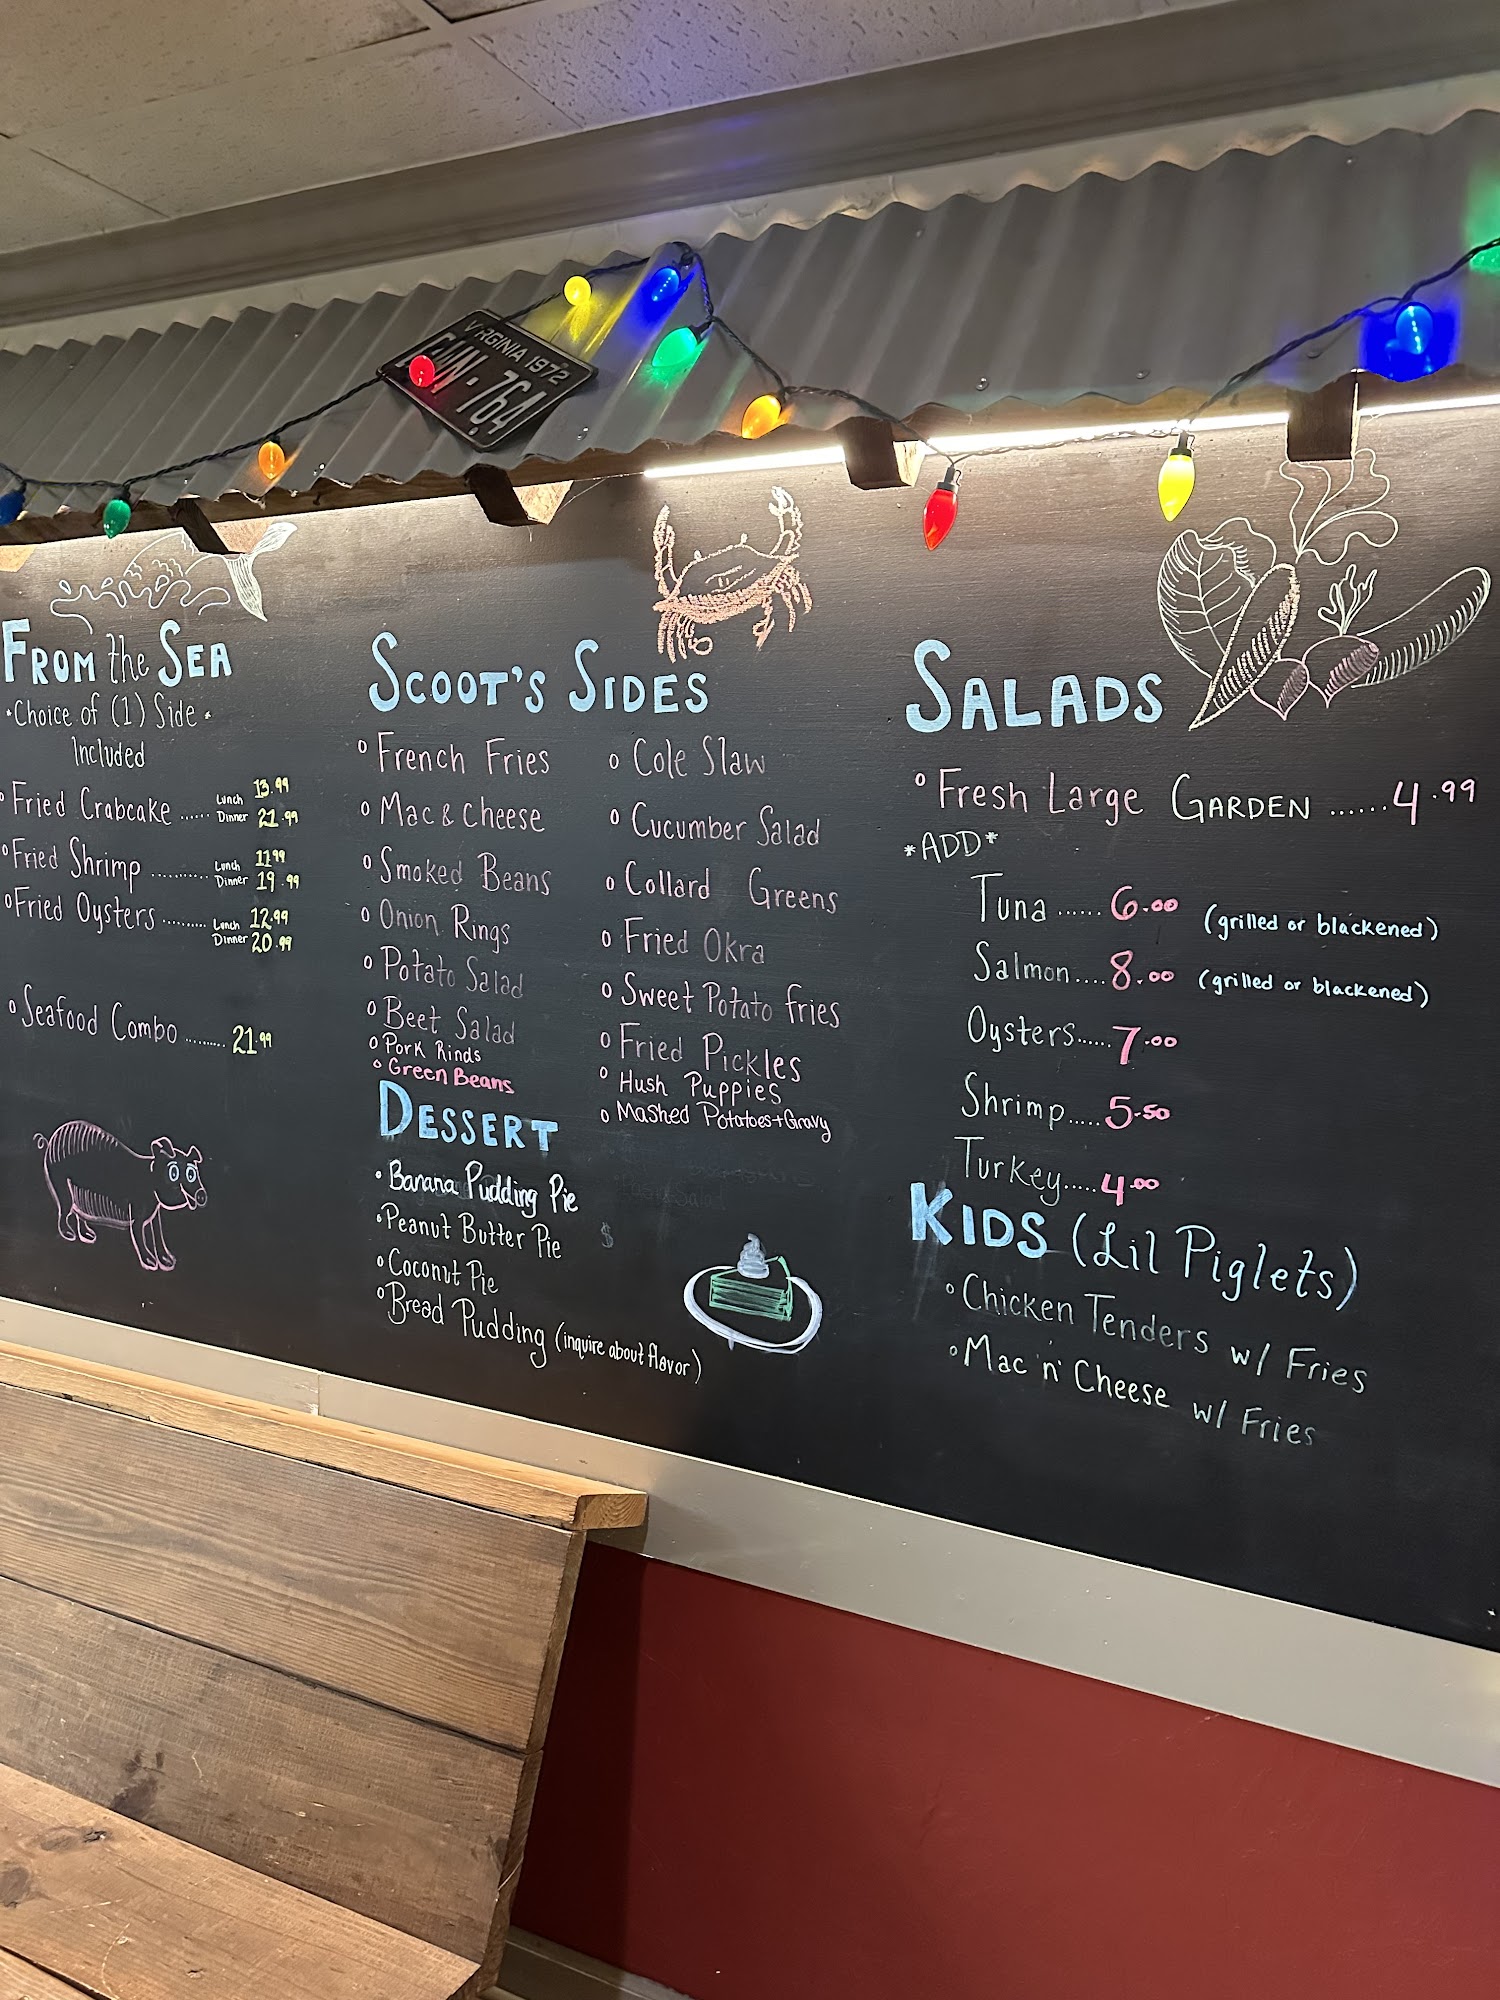 VIRGINIA 1972
764
FROM the SEA
•Choice of (1) Side•
Included
Fried Crabcake ...... Lunch 13.99
Dinner 21.99
Fried Shrimp .......... Lunch 11.99
Dinner 19.99
Fried Oysters ......... Lunch 12.99
Dinner 20.99
Seafood Combo ......... 21.99
SCOOT'S SIDES
French Fries
Mac & Cheese
Smoked Beans
Onion Rings
Potato Salad
Beet Salad
Pork Rinds
Green Beans
Cole Slaw
Cucumber Salad
Collard Greens
Fried Okra
Sweet Potato fries
Fried Pickles
Hush Puppies
Mashed Potatoes+Gravy
DESSERT
Banana Pudding Pie
Peanut Butter Pie
Coconut Pie
Bread Pudding (inquire about flavor)
SALADS
Fresh Large GARDEN ...... 4.99
*ADD*
Tuna ...... 6.00 (grilled or blackened)
Salmon.... 8.00 (grilled or blackened)
Oysters...... 7.00
Shrimp..... 5.50
Turkey..... 4.00
KIDS (Lil Piglets)
Chicken Tenders w/ Fries
Mac 'n' Cheese w/ Fries